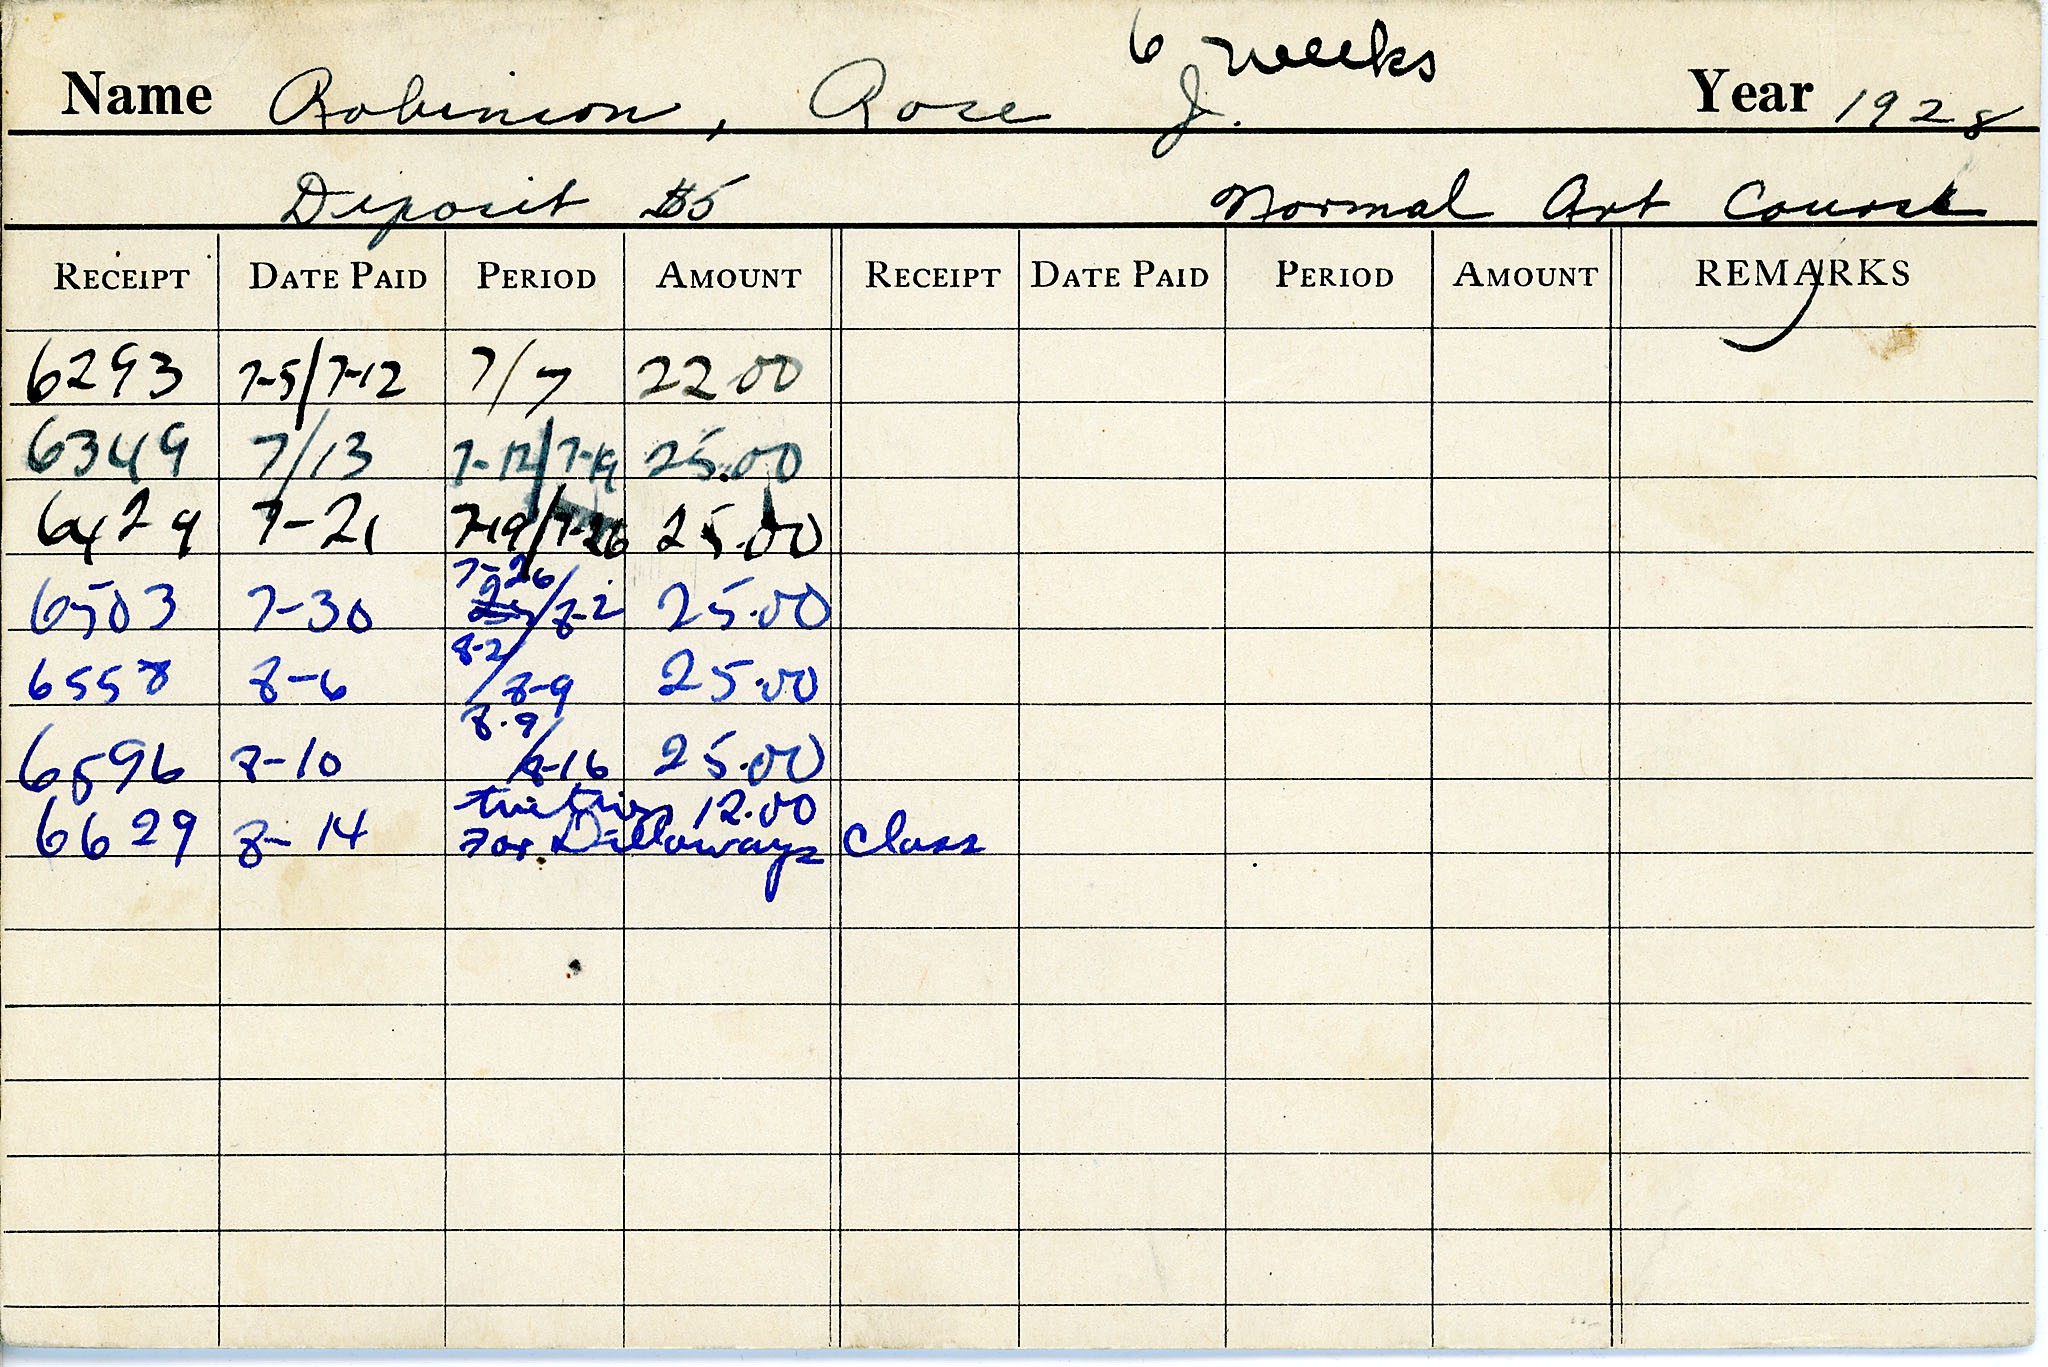 6 weeks
Name Robinson, Rose J. Year 1928
Deposit $5 Normal Art Course
RECEIPT DATE PAID PERIOD AMOUNT RECEIPT DATE PAID PERIOD AMOUNT REMARKS
6293 7-5/7-12 7/7 22.00
6349 7/13 7-12/7-19 25.00
6429 7-21 7-19/7-26 25.00
7-26
6503 7-30 /8-2 25.00
8-2
6558 8-6 /8-9 25.00
8-9
6596 8-10 /8-16 25.00
12.00
6629 8-14 For Dillaways class